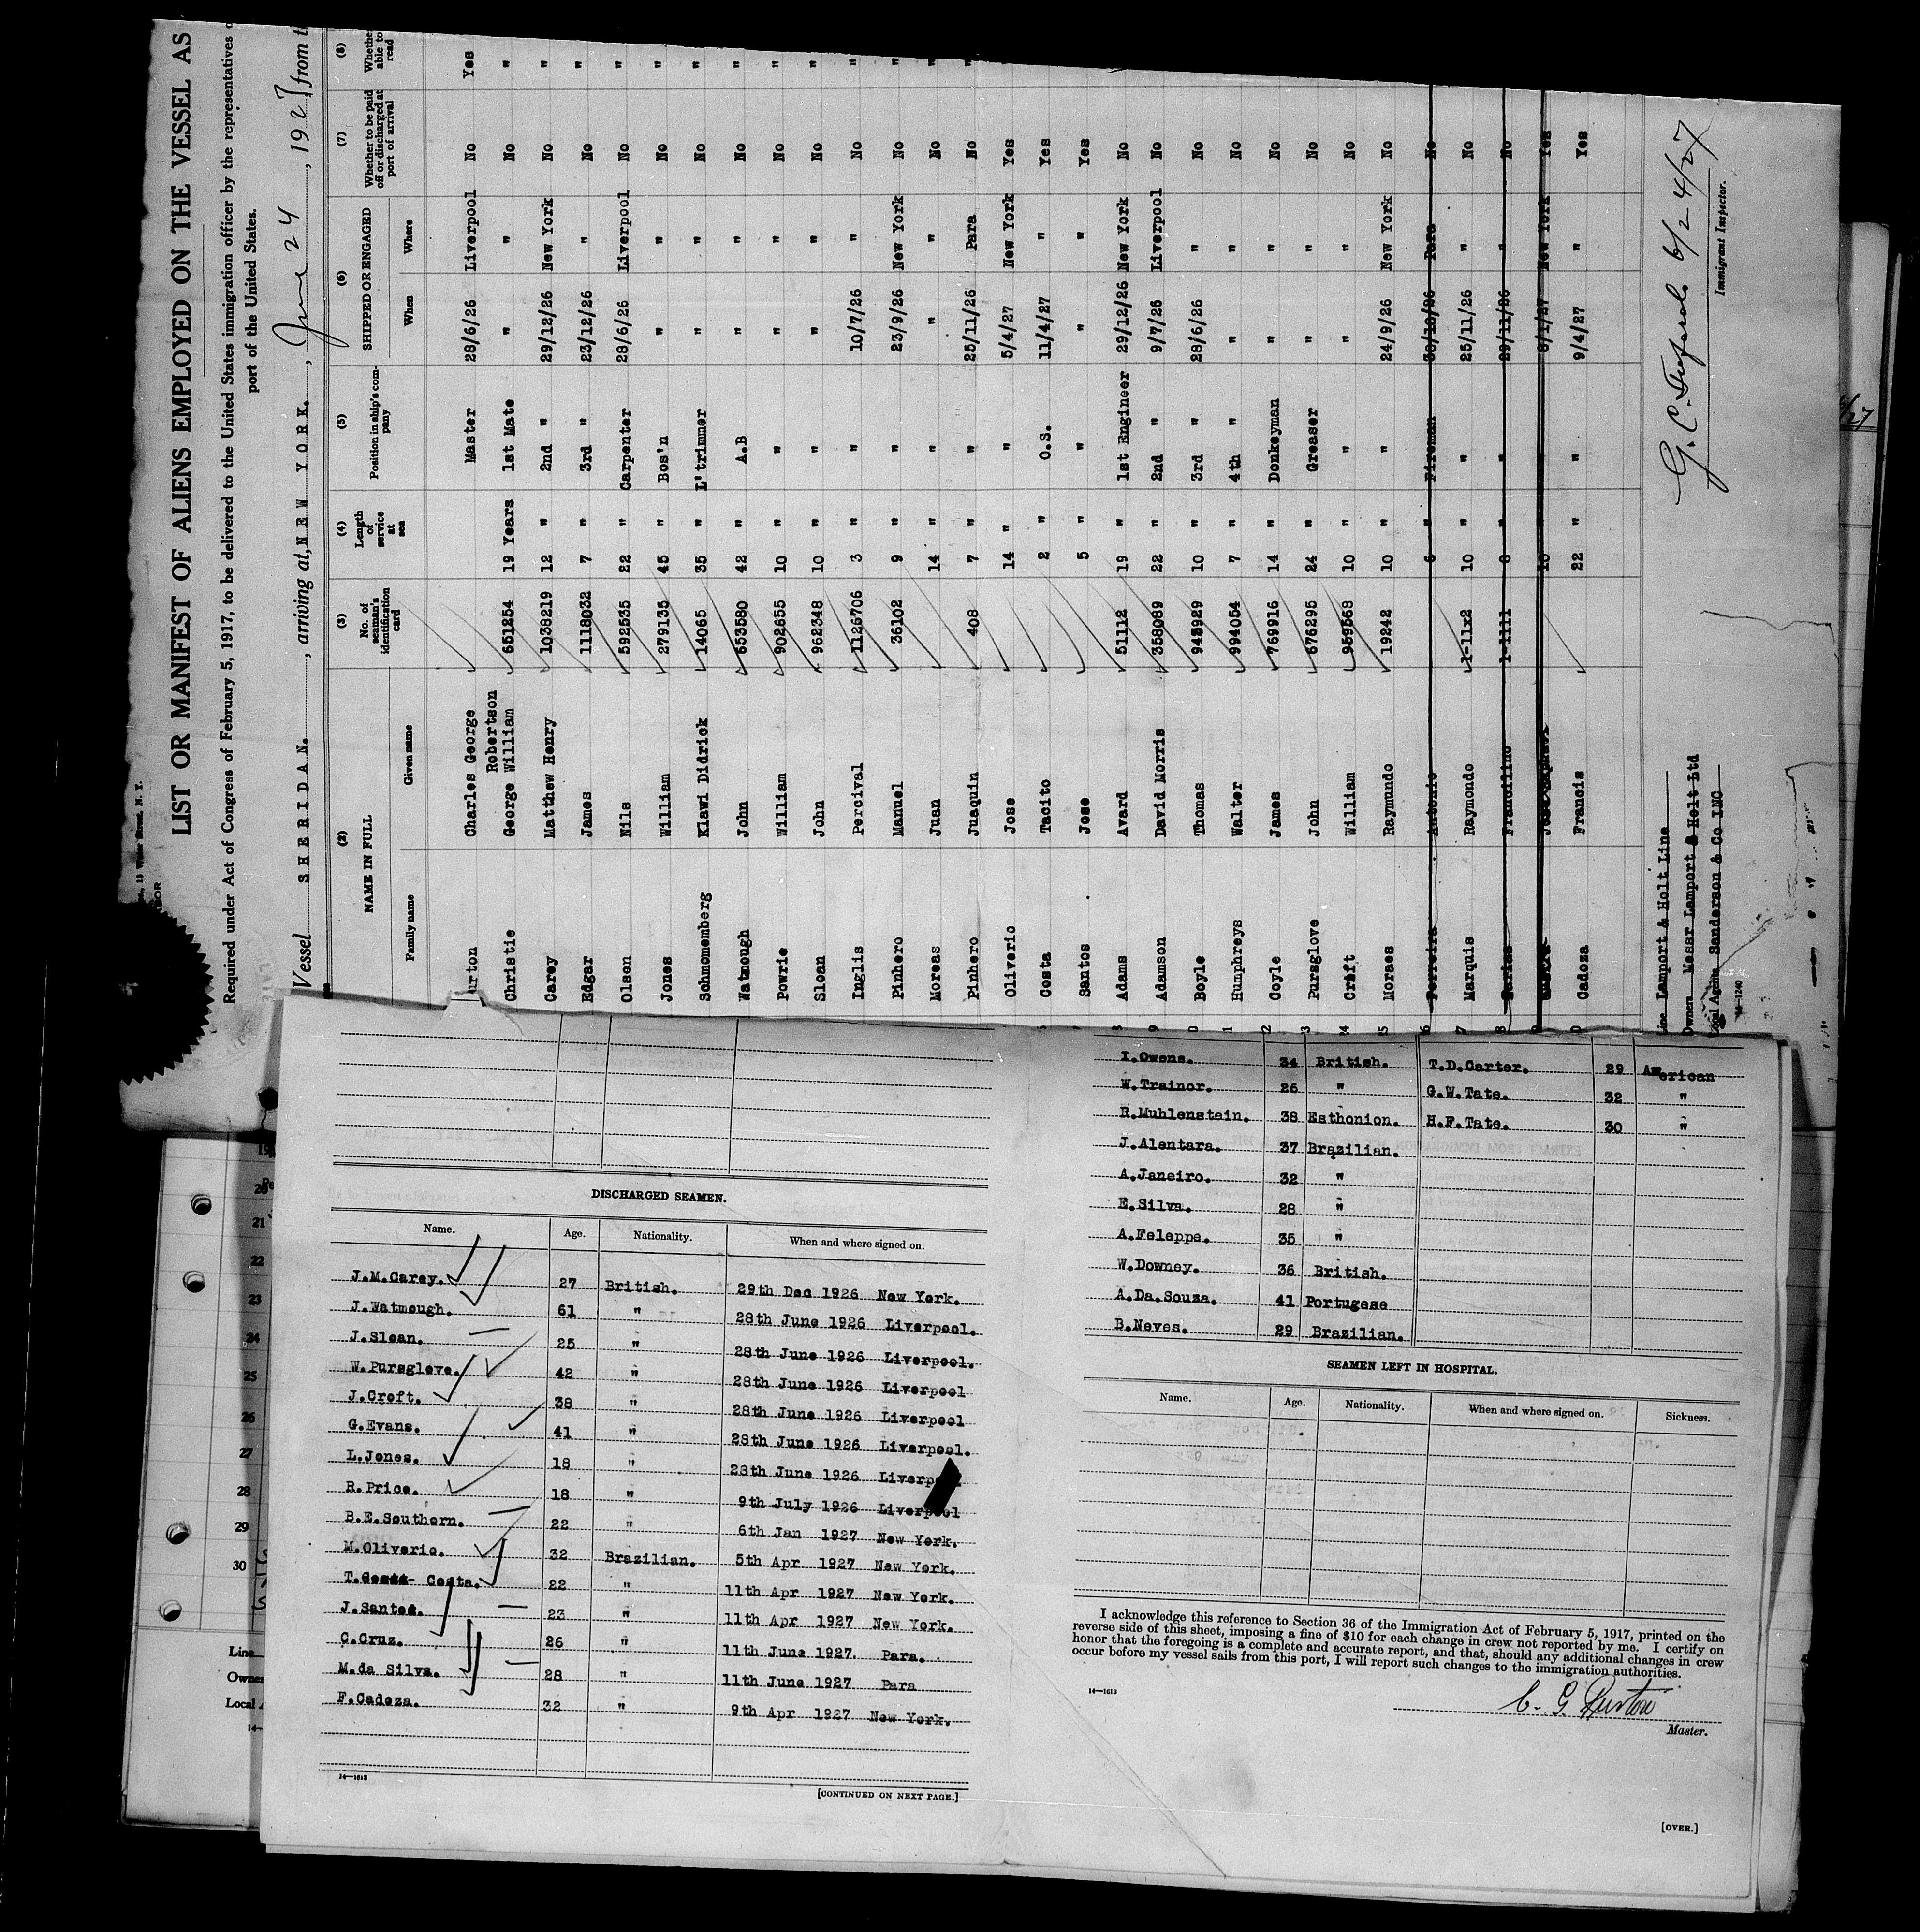 LIST OR MANIFEST OF ALIENS EMPLOYED ON THE VESSEL AS
Required under Act of Congress of February 5, 1917, to be delivered to the United States immigration officer by the representatives
port of the United States.
Vessel SHERIDAN. , arriving at, NEW YORK. , June 24 , 1927 from
(2) (3) (4) (5) (6) (7) (8)
NAME IN FULL No. of seaman's identification card Length of service at sea Position in ship's company SHIPPED OR ENGAGED Whether to be paid off or discharged at port of arrival Whether able to read
Family name Given name When Where
urton Charles George Master 28/6/26 Liverpool No Yes
Robertson
Christie George William 651254 19 Years 1st Mate " " No "
Carey Matthew Henry 1038219 12 " 2nd " 29/12/26 New York No "
Edgar James 1118032 7 " 3rd " 23/12/26 " No "
Olson Nils 592535 22 " Carpenter 28/6/26 Liverpool No "
Jones William 279135 45 " Bos'n " " No "
Schnomemberg Klawi Didrick 14065 35 " L'trimmer " " No "
Watmough John 653580 42 " A.B " " No "
Powrie William 902655 10 " " " " No "
Sloan John 962348 10 " " " " No "
Inglis Percival 1126706 3 " " 10/7/26 " No "
Pinhero Manuel 36102 9 " " 23/9/26 New York No "
Moreas Juan 14 " " " " No "
Pinhero Juaquin 408 7 " " 25/11/26 Para No "
Oliverio Jose 14 " " 5/4/27 New York Yes
Costa Tacito 2 " O.S. 11/4/27 " Yes
Santos Jose 5 " " " " Yes
Adams Avard 51112 19 " 1st Engineer 29/12/26 New York No
Adamson David Morris 358089 22 " 2nd " 9/7/26 Liverpool No
Boyle Thomas 945929 10 " 3rd " 28/6/26 " No
Humphreys Walter 994054 7 " 4th " " " No
Coyle James 769916 14 " Donkeyman " " No
Pursglove John 676295 24 " Greaser " " No
Croft William 959568 10 " " " " No
Moraes Raymundo 19242 10 " " 24/9/26 New York No
Ferreira Antonio 6 " Fireman 30/10/26 Para No
Marquis Raymondo 1-11x2 10 " " 25/11/26 " No
Farias Francilino 1-1111 8 " " 29/11/26 " No
10 " " 6/1/27 New York Yes
Cadoza Francis 22 " " 9/4/27 " Yes
Line Lamport & Holt Line
Owners Messr Lamport & Holt Ltd
Local Agents Sanderson & Co INC
14-1240
6/24/27
Immigrant Inspector.
DISCHARGED SEAMEN.
Name. Age. Nationality. When and where signed on.
J.M.Carey. 27 British. 29th Dec 1926 New York.
J.Watmough. 61 " 28th June 1926 Liverpool.
J.Sloan. 25 " 28th June 1926 Liverpool.
W.Pursglove. 42 " 28th June 1926 Liverpool
J.Croft. 38 " 28th June 1926 Liverpool
G.Evans. 41 " 28th June 1926 Liverpool.
L.Jones. 18 " 28th June 1926 Liverpool
R.Price. 18 " 9th July 1926 Liverpool
B.E.Southern. 22 " 6th Jan 1927 New York.
M.Oliverio. 32 Brazilian. 5th Apr 1927 New York.
T.Costa- Costa. 22 " 11th Apr 1927 New York.
J.Santos. 23 " 11th Apr 1927 New York.
C.Cruz. 26 " 11th June 1927. Para.
M.da Silva. 28 " 11th June 1927 Para
F.Cadoza. 32 " 9th Apr 1927 New York.
14—1613
[CONTINUED ON NEXT PAGE.]
I.Owens. 34 British. T.D.Carter. 29 American
W.Trainor. 26 " G.W.Tate. 32 "
R.Muhlenstein. 38 Esthonion. H.F.Tate. 30 "
J.Alentara. 37 Brazilian.
A.Janeiro. 32 "
E.Silva. 28 "
A.Feleppe. 35 "
W.Downey. 36 British.
A.Da.Souza. 41 Portugese
B.Neves. 29 Brazilian.
SEAMEN LEFT IN HOSPITAL.
Name. Age. Nationality. When and where signed on. Sickness.
I acknowledge this reference to Section 36 of the Immigration Act of February 5, 1917, printed on the
reverse side of this sheet, imposing a fine of $10 for each change in crew not reported by me. I certify on
honor that the foregoing is a complete and accurate report, and that, should any additional changes in crew
occur before my vessel sails from this port, I will report such changes to the immigration authorities.
14—1613
C. G. Burton
Master.
[OVER.]
21
22
23
24
25
26
27
28
29
30
Line
Owner
Local